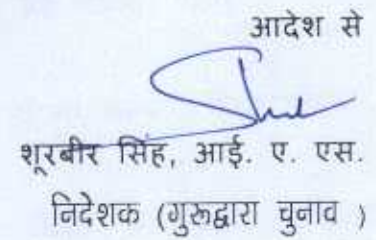 आदेश से
शूरबीर सिंह, आई. ए. एस.
निदेशक (गुरूद्वारा चुनाव )